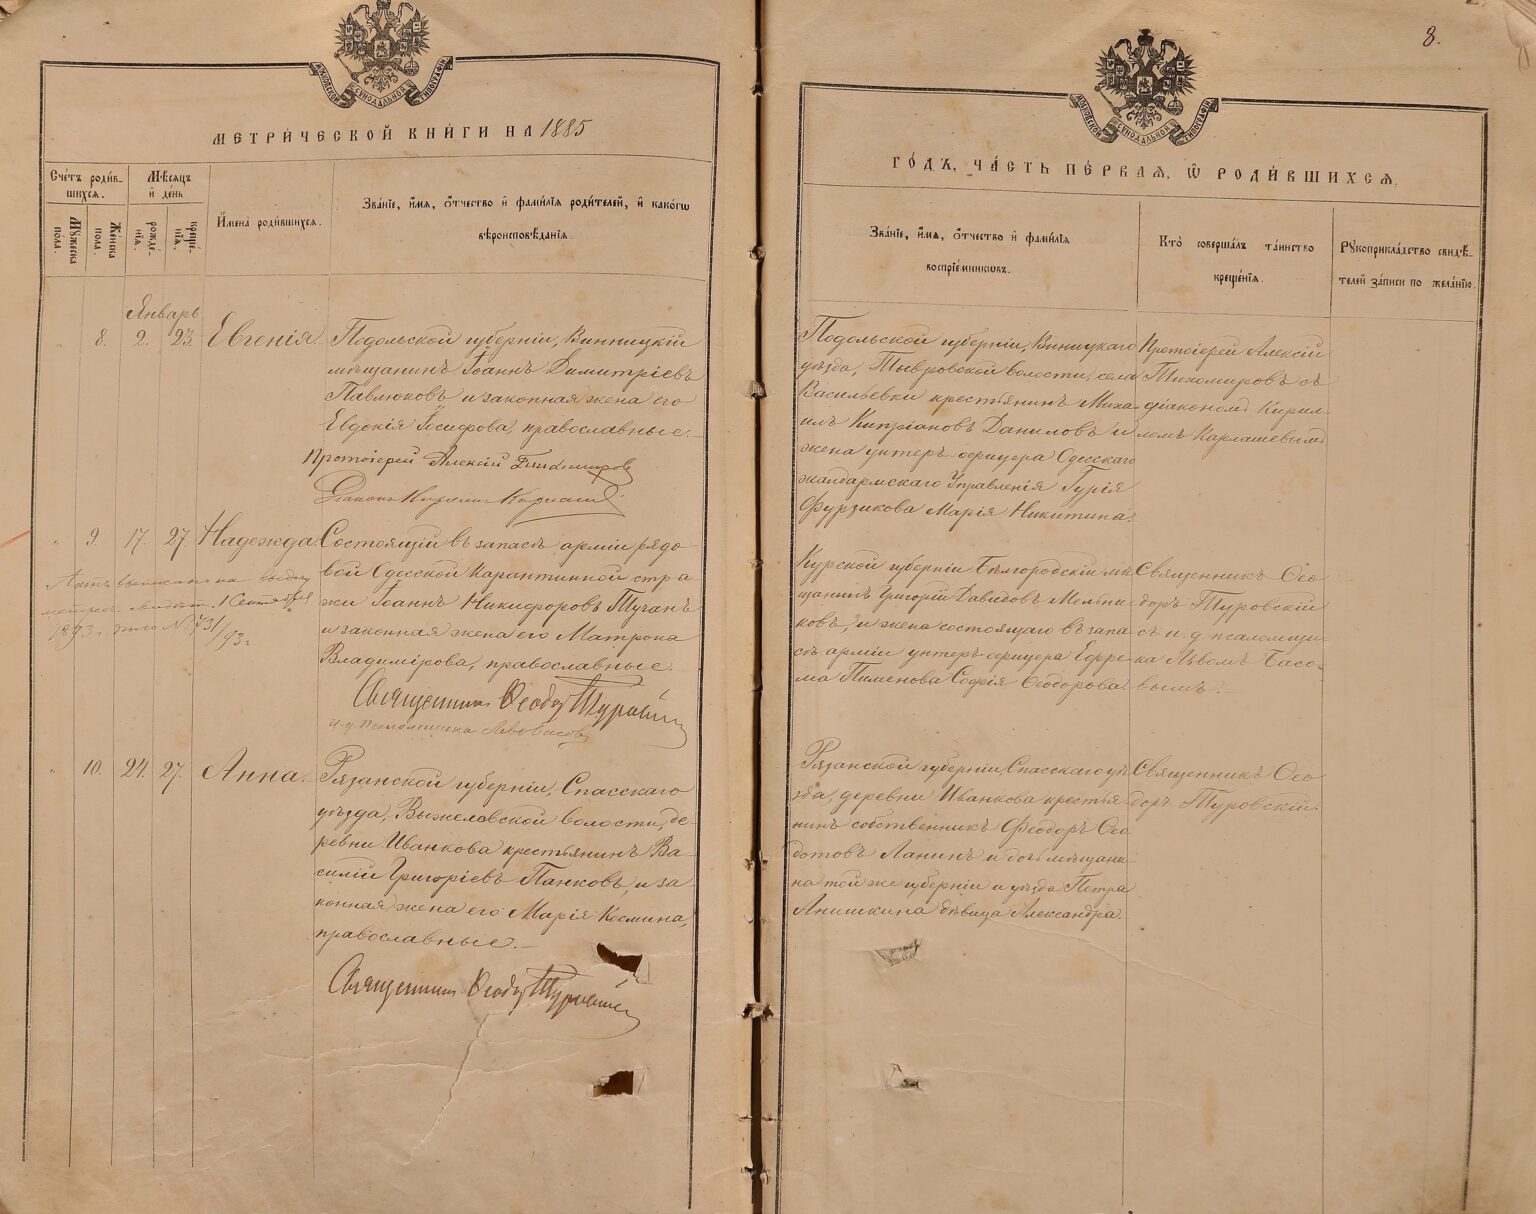 МОСКОВСКОЙ СѴНОДАЛЬНОЙ ТИПОГРАФІИ
МЕТРИ́ЧЕСКОЙ КНИ́ГИ НА 1885
Сче́тъ роди́в-
шихся.
Мѣ́сяцъ
и҆ де́нь
Му́жеска
пола.
Же́нска
пола.
рожде́-
нїя.
креще́-
нїя.
И҆мена̀ роди́вшихся.
Зва́нїе, и҆́мя, ѻ҆́тчество и҆ фами́лїя роди́телей, и҆ како́гѡ
вѣроисповѣ́данїя.
Январь
" 8. 2. 23. Евгенія.
Подольской губерніи, Винницкій
мѣщанинъ Іоаннъ Димитріевъ
Павлюковъ и законная жена его
Евдокія Іосифова, православные.
Протоіерей Алексій Тихомировъ
Діаконъ Кириллъ Карлашевъ
" 9. 17. 27. Надежда.
Состоящій въ запасѣ арміи рядо-
вой Одесской Карантинной стра-
жи Іоаннъ Никифоровъ Тучанъ
и законная жена его Матрона
Владимірова, православные.
Священникъ Ѳеодоръ Туровскій
и. д. псаломщика Левъ Басовъ
1 Сентября
1893 г. за № 731/93 г.
" 10. 24. 27. Анна.
Рязанской губерніи, Спасскаго
уѣзда, Выжелевской волости, де-
ревни Иванкова крестьянинъ Ва-
силій Григоріевъ Панковъ, и за-
конная жена его Марія Космина,
православные.
Священникъ Ѳеодоръ Туровскій
8.
МОСКОВСКОЙ СѴНОДАЛЬНОЙ ТИПОГРАФІИ
ГО́ДЪ, ЧА́СТЬ ПЕ́РВАЯ, Ѽ РОДИ́ВШИХСЯ.
Зва́нїе, и҆́мя, ѻ҆́тчество и҆ фами́лїя
воспрїе́мникωвъ.
Кто̀ соверша́лъ та́инство
креще́нїя.
Рукоприкла́дство свидѣ́-
телей за́писи по жела́нїю.
Подольской губерніи, Виницкаго
уѣзда, Тывровской волости, села
Васильевки крестьянинъ Миха-
илъ Кипріановъ Даниловъ и
жена унтеръ-офицера Одесскаго
жандармскаго Управленія Гурія
Фурзикова Марія Никитина.
Протоіерей Алексій
Тихомировъ съ
діакономъ Кирил-
ломъ Карлашевымъ
Курской губерніи Бѣлгородскій мѣ-
щанинъ Григорій Давидовъ Мельни-
ковъ, и жена состоящаго въ запа-
сѣ арміи унтеръ-офицера Ефре-
ма Пименова Софія Ѳеодорова.
Священникъ Ѳео-
доръ Туровскій
съ и. д. псаломщи-
ка Львомъ Басо-
вымъ.
Рязанской губерніи, Спасскаго уѣ-
зда, деревни Иванкова крестья-
нинъ собственникъ Феодоръ Ѳео-
дотовъ Ланинъ и дочь мѣщани-
на той же губерніи и уѣзда Петра
Анишкина дѣвица Александра.
Священникъ Ѳео-
доръ Туровскій.